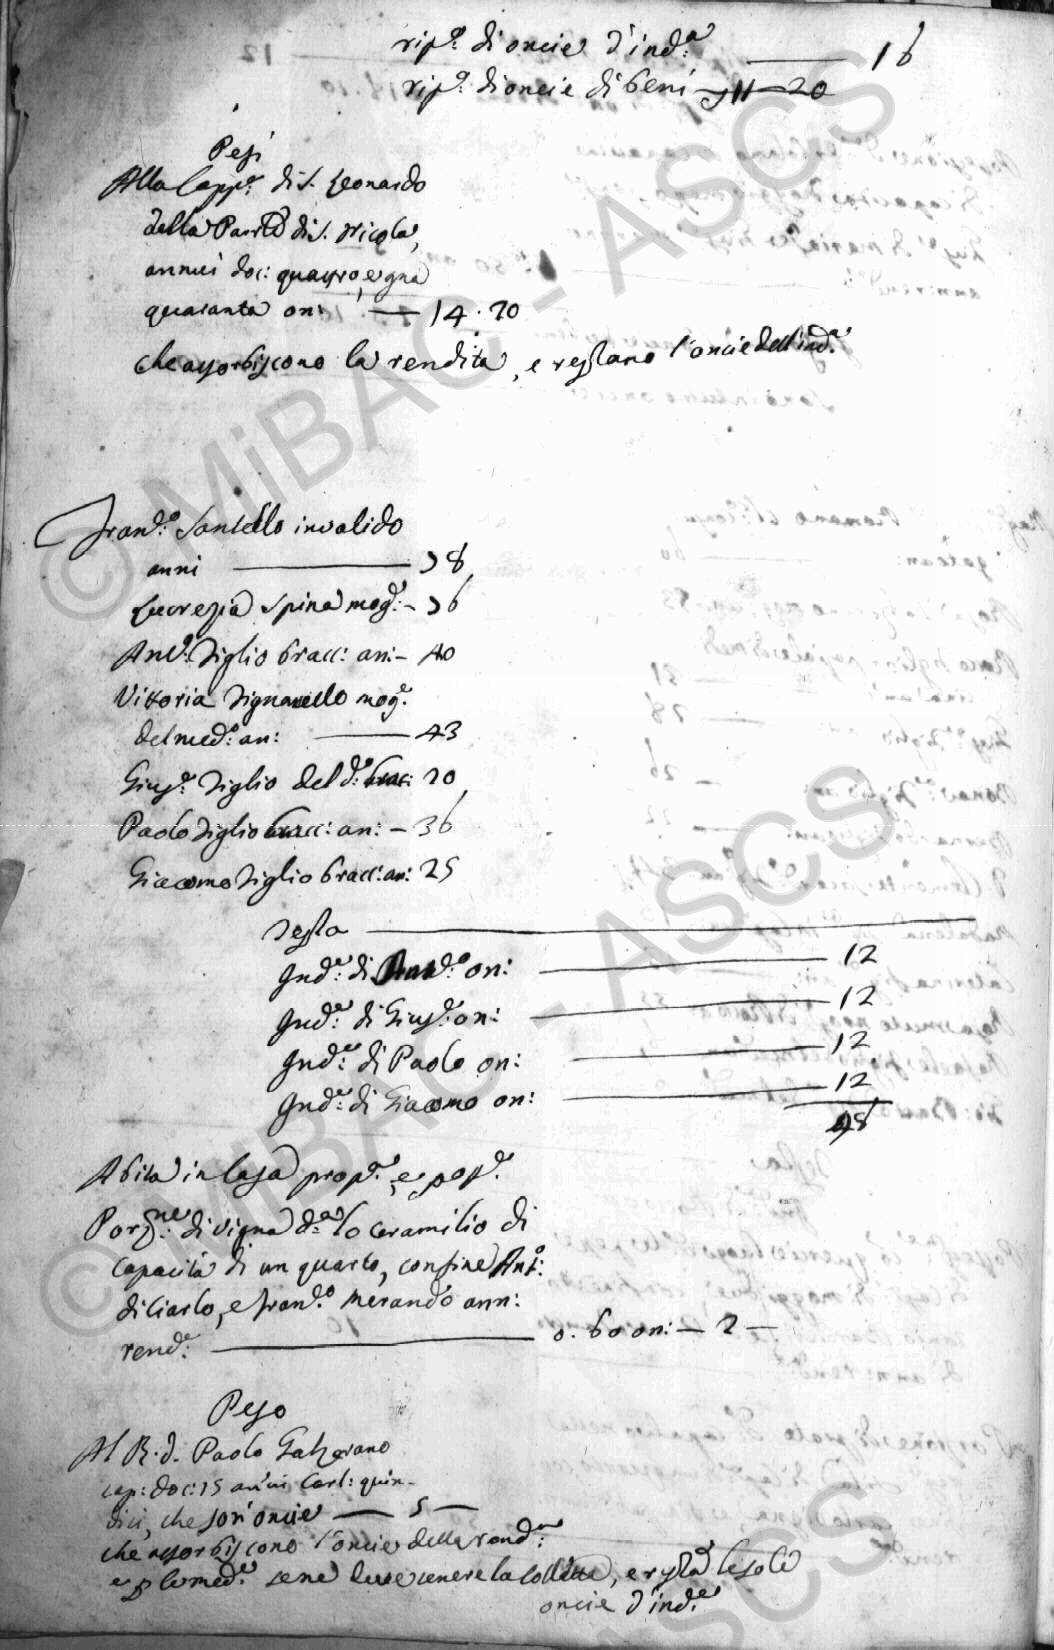 rip.º di oncie d'ind.ª —— 16
rip.º di oncie di beni — 11 — 20
Pesi
Alla Capp.ª di S. Leonardo
della Parr.ª di S. Nicola,
annui doc: quattro, e grna
quaranta on: — 14 . 20
che assorbiscono la rendita, e restano l'oncie dell'ind.ª
Fran.º Santello invalido
anni —— 78
Lucrezia Spina mog.e: — 76
Ant.º figlio bracc: an: — 40
Vittoria Signarello mog.e
del med.º an: —— 43
Gius.e figlio del d.º bracc: 20
Paolo figlio bracc: an: — 36
Giacomo figlio bracc: an: 25
Testa ——
Ind.ª di And.º on: —— 12
Ind.ª di Gius.e on: —— 12
Ind.ª di Paolo on: —— 12
Ind.ª di Giacomo on: —— 12
48
Abita in Casa prop.ª, e poss.e
Porz.ne di vigna d.ª lo Ceramilio di
capacità di un quarto, confine Ant.º:
di Ciarlo, e Fran.º Merando ann:
rend.ª —— 0. 60 on: — 2 —
Peso
Al R. D. Paolo
cap: doc: 15 annui Carl: quin-
dici, che son' oncie — 5 —
che assorbiscono l'oncie della rend.ª:
e p lo med.º se ne deve tenere la colletta, e resta le sole
oncie d'ind.ª
© MiBAC - ASCS
© MiBAC - ASCS
ASCS